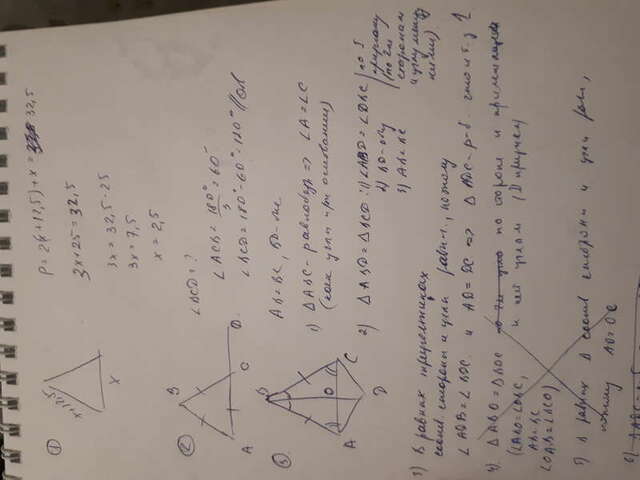 ①
x+12,5
x
P = 2(x+12,5)+x = 32,5
3x+25 = 32,5
3x = 32,5-25
3x = 7,5
x = 2,5
②
B
A C D
∠BCD = ?
∠ACB = 180°/3 = 60°
∠BCD = 180°-60° = 120°
③
B
A O C
D
AB=BC, BD-
1) △ABC - равнобедр => ∠A=∠C
(как углы при основании)
2) △ABD = △BCD: 1) ∠ABD = ∠DBC
2) BD-общ
3) AB=BC
по I
признаку
(по 2м
сторонам
и углу между
ними).
3) В равных треугольниках
соотв. стороны и углы равн., поэтому
∠ADB = ∠BDC и AD = DC => △ADC - р-б. ч.т.д.
4) △ABO = △BOC по стороне и прилежащим
к ней углам (II признак)
(∠ABO = ∠OBC,
AB=BC
∠OAB = ∠BCO)
5) В равных △ соотв стороны и углы равн,
поэтому AO = OC
6) △ADC